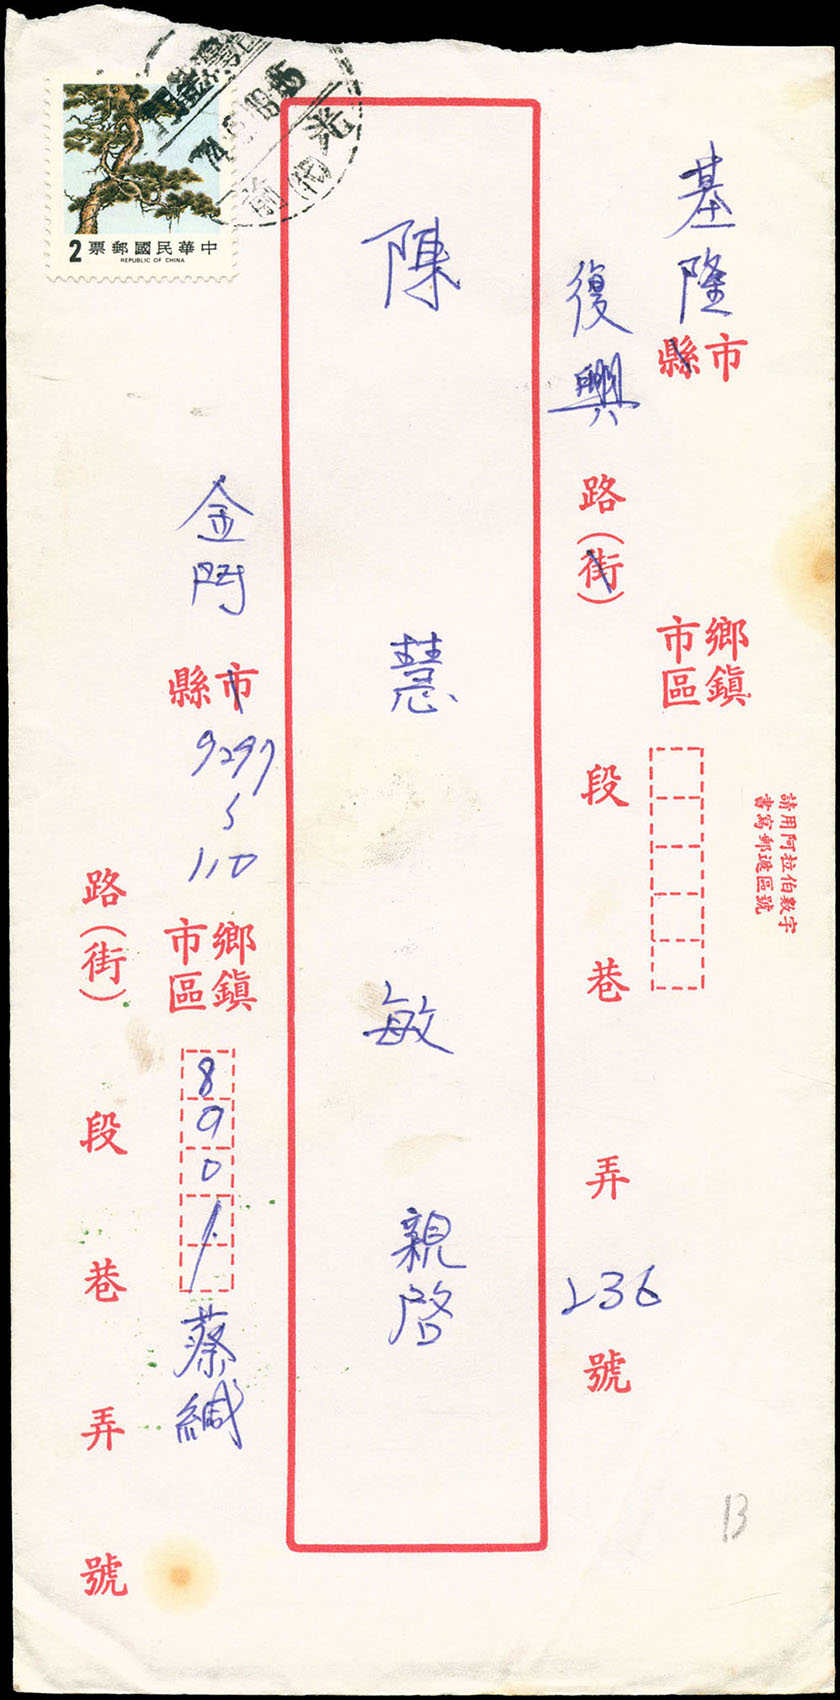 基隆
縣市
鄉鎮
市區
請用阿拉伯數字
書寫郵遞區號
復興
路(街)
段
巷
弄
236
號
陳慧敏親啓
中華民國郵票
2
REPUBLIC OF CHINA
金門
縣市
9297
110
鄉鎮
市區
890
蔡緘
路(街)
段
巷
弄
號
B